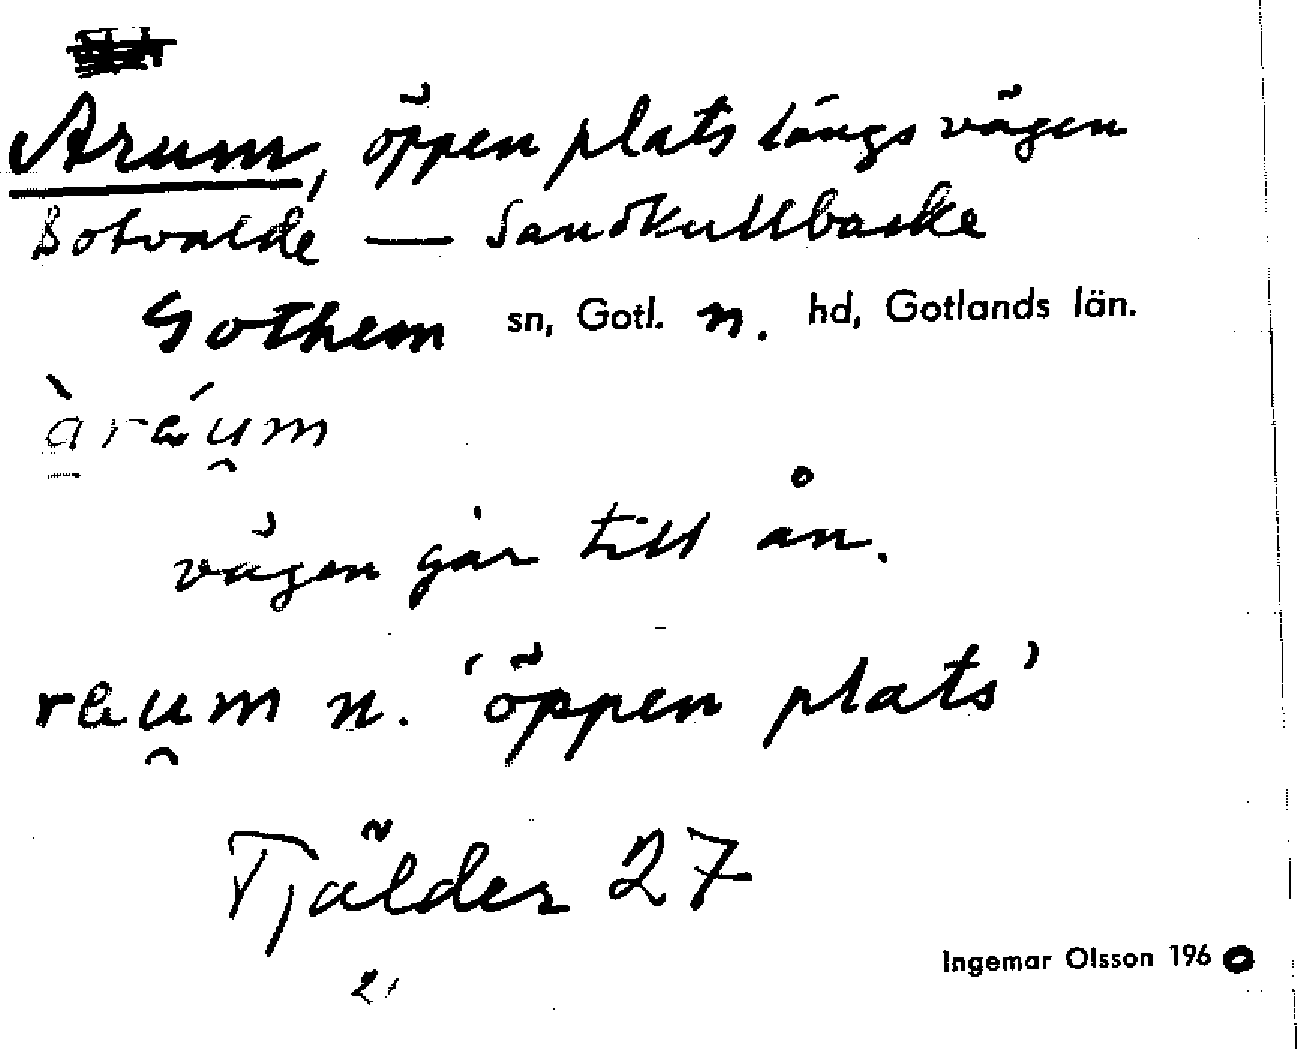 Arum, öppen plats längs vägen
Botvalde — Sandkullbacke
Gothem sn, Gotl. n. hd, Gotlands län.
àráu̯m
vägen går till ån.
rau̯m n. 'öppen plats'
Tjälder 27
Ingemar Olsson 1960